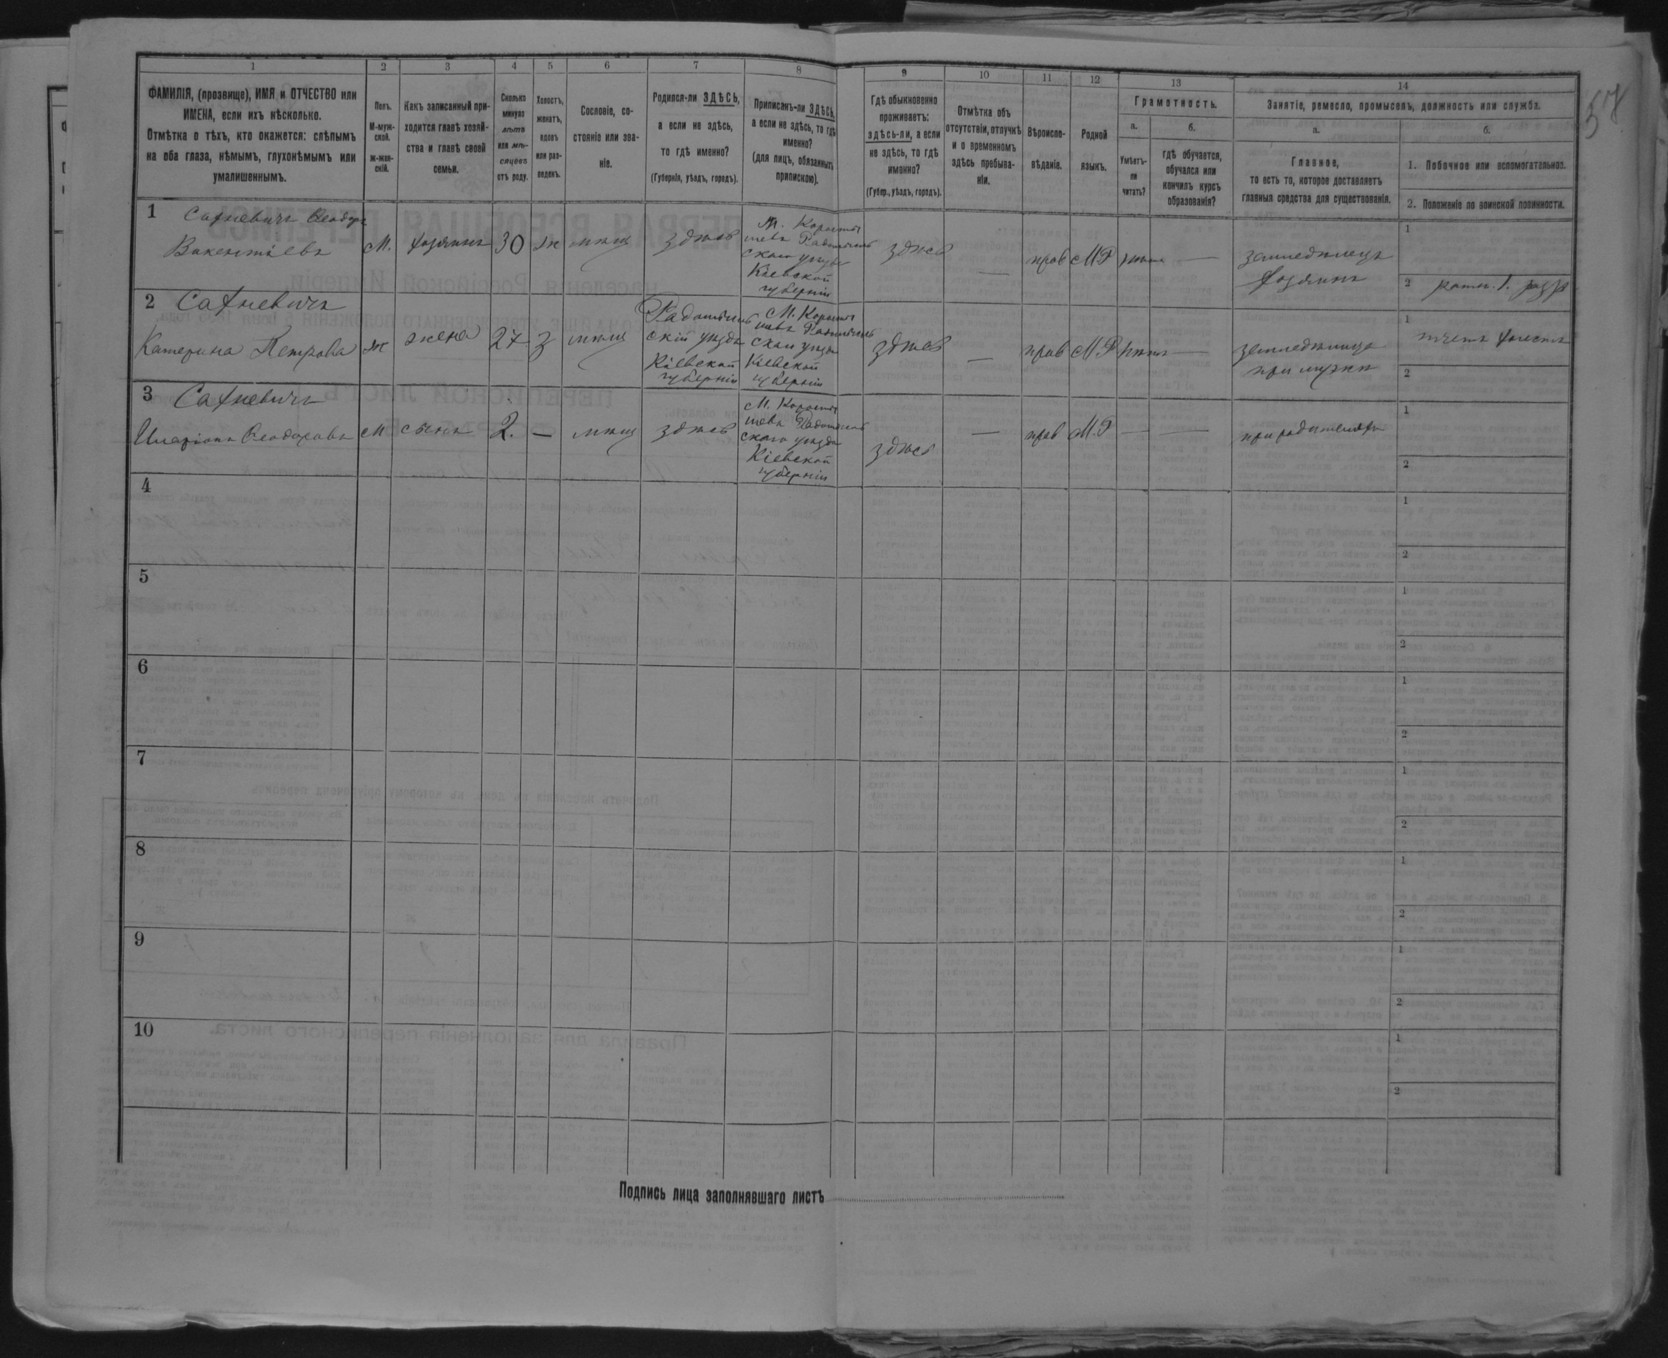 1
2
3
4
5
6
7
8
9
10
11
12
13
14
ФАМИЛІЯ, (прозвище), ИМЯ и ОТЧЕСТВО или
ИМЕНА, если ихъ нѣсколько.
Отмѣтка о тѣхъ, кто окажется: слѣпымъ
на оба глаза, нѣмымъ, глухонѣмымъ или
умалишеннымъ.
Полъ.
М-муж-
ской.
ж-жен-
скій.
Какъ записанный при-
ходится главѣ хозяй-
ства и главѣ своей
семьи.
Сколько
минуло
лѣтъ
или мѣ-
сяцевъ
отъ роду.
Холостъ,
женатъ,
вдовъ
или раз-
веденъ.
Сословіе, со-
стояніе или зва-
ніе.
Родился-ли ЗДѢСЬ,
а если не здѣсь,
то гдѣ именно?
(Губернія, уѣздъ, городъ).
Приписанъ-ли ЗДѢСЬ,
а если не здѣсь, то гдѣ
именно?
(для лицъ, обязанныхъ
припискою).
Гдѣ обыкновенно
проживаетъ:
здѣсь-ли, а если
не здѣсь, то гдѣ
именно?
(Губер., уѣздъ, городъ).
Отмѣтка объ
отсутствіи, отлучкѣ
и о временномъ
здѣсь пребыва-
ніи.
Вѣроиспо-
вѣданіе.
Родной
языкъ.
Грамотность.
а.
Умѣетъ-
ли
читать?
б.
гдѣ обучается,
обучался или
кончилъ курсъ
образованія?
Занятіе, ремесло, промыселъ, должность или служба.
а.
Главное,
то есть то, которое доставляетъ
главныя средства для существованія.
б.
1. Побочное или вспомогательное.
2. Положеніе по воинской повинности.
1
Вѝкентіевъ
М.
хозяинъ
30
ж
мѣщ
здѣсь
М. Коросты
шевъ Радомысль
скаго уѣзда
Кіевской
губерніи
здѣсь
—
прав
МР
—
земледѣлецъ
хозяинъ
1
2
2
Катерина Петрова
ж
жена
27
з
мѣщ
Радомысль
скій уѣздъ
Кіевской
губерніи
М. Коросты
шевъ Радомысль
скаго уѣзда
Кіевской
губерніи
здѣсь
—
прав
МР
—
земледѣлица
при мужѣ
1
2
3
м
сынъ
2.
—
мѣщ
здѣсь
М. Коросты
шевъ Радомысль
скаго уѣзда
Кіевской
губерніи
здѣсь
—
прав
МР
—
—
при родителяхъ
1
2
4
1
2
5
1
2
6
1
2
7
1
2
8
1
2
9
1
2
10
1
2
Подпись лица заполнявшаго листъ